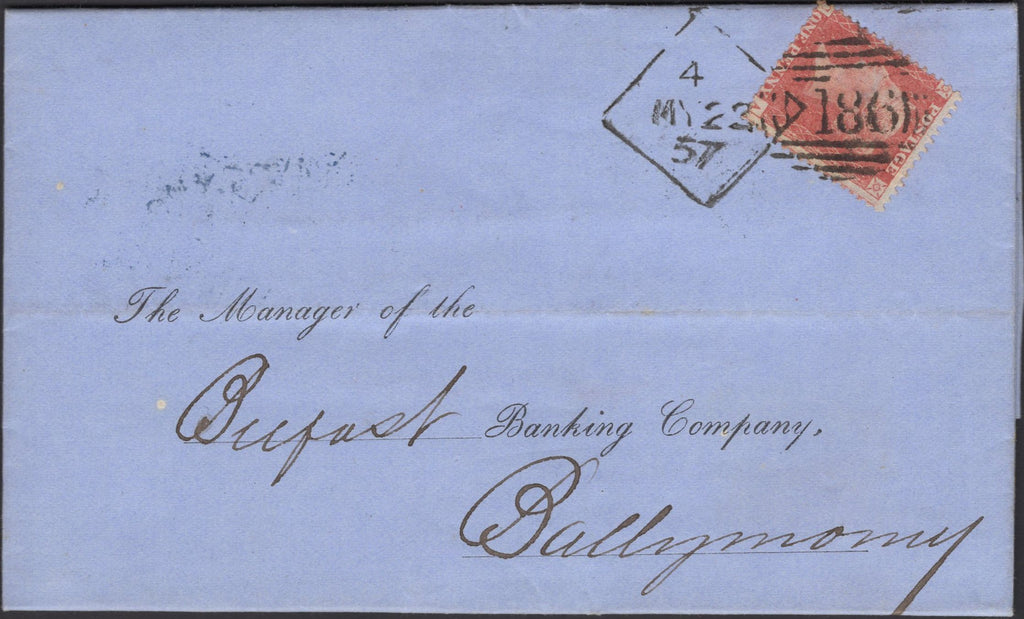 4
MY 23
57
186
ONE PENNY
POSTAGE
The Manager of the
Belfast Banking Company,
Ballymoney